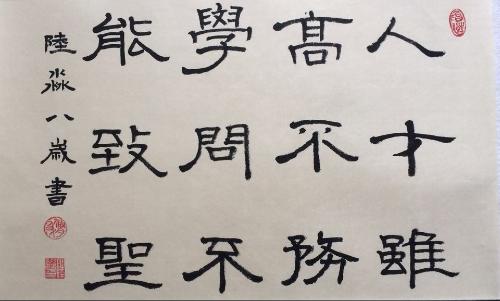 人才雖
高不務
學問不
能致聖
陸淼八歲書